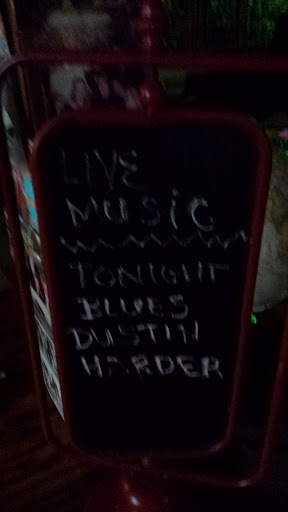 LIVE
MUSiC
TONIGHT
BLUES
DUSTIN
HARDER